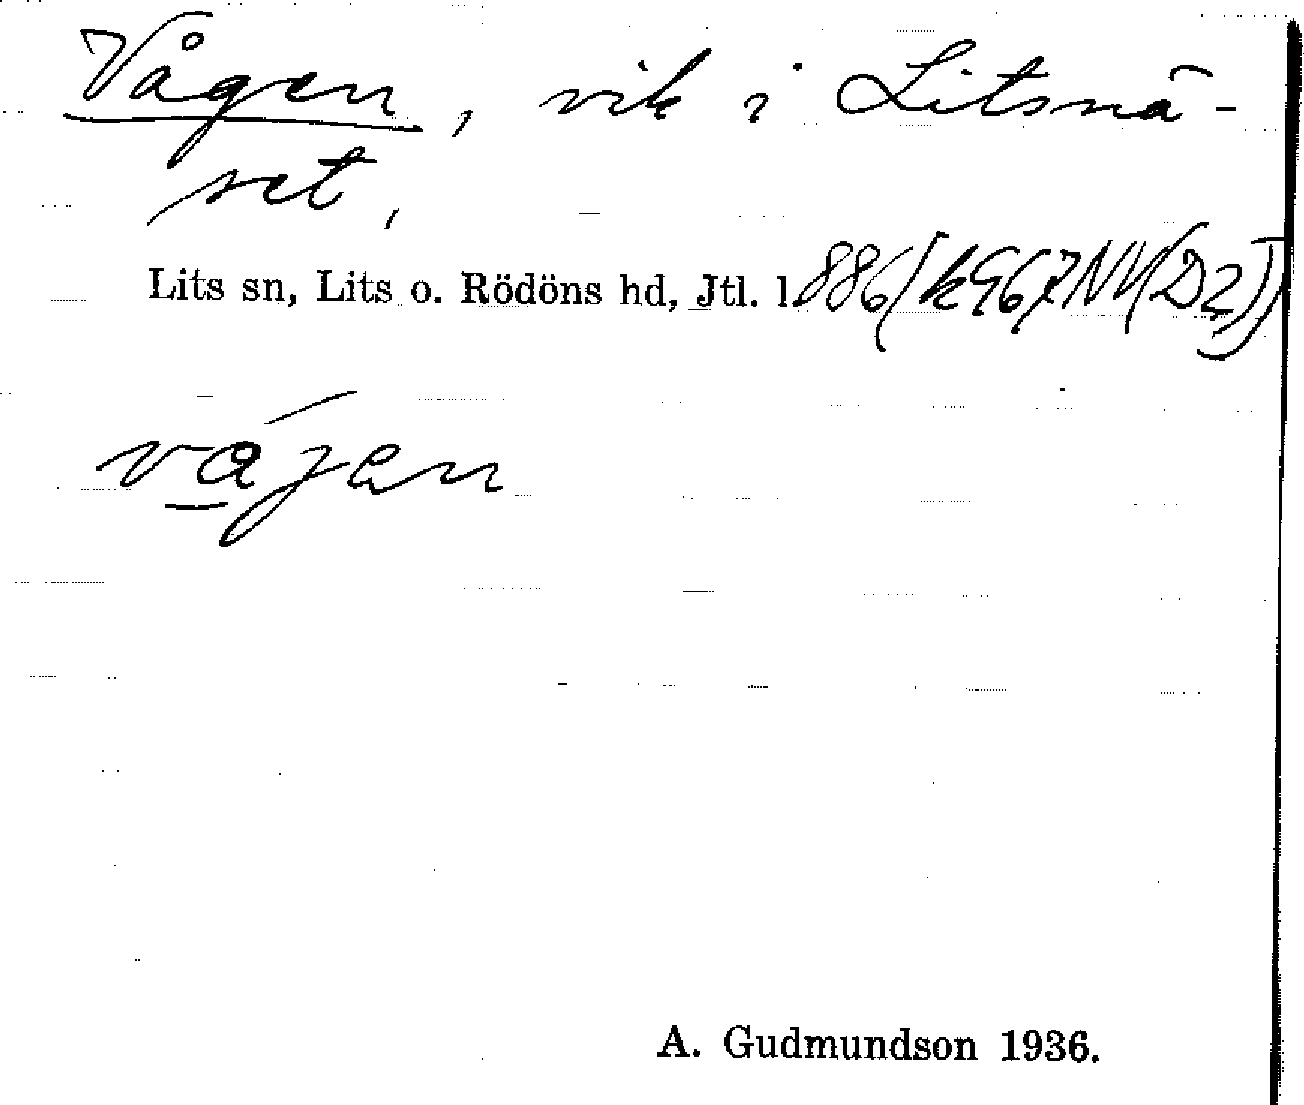 Vågen, vik i Litsnä-
set,
Lits sn, Lits o. Rödöns hd, Jtl. l. 886
vájen
A. Gudmundson 1936.